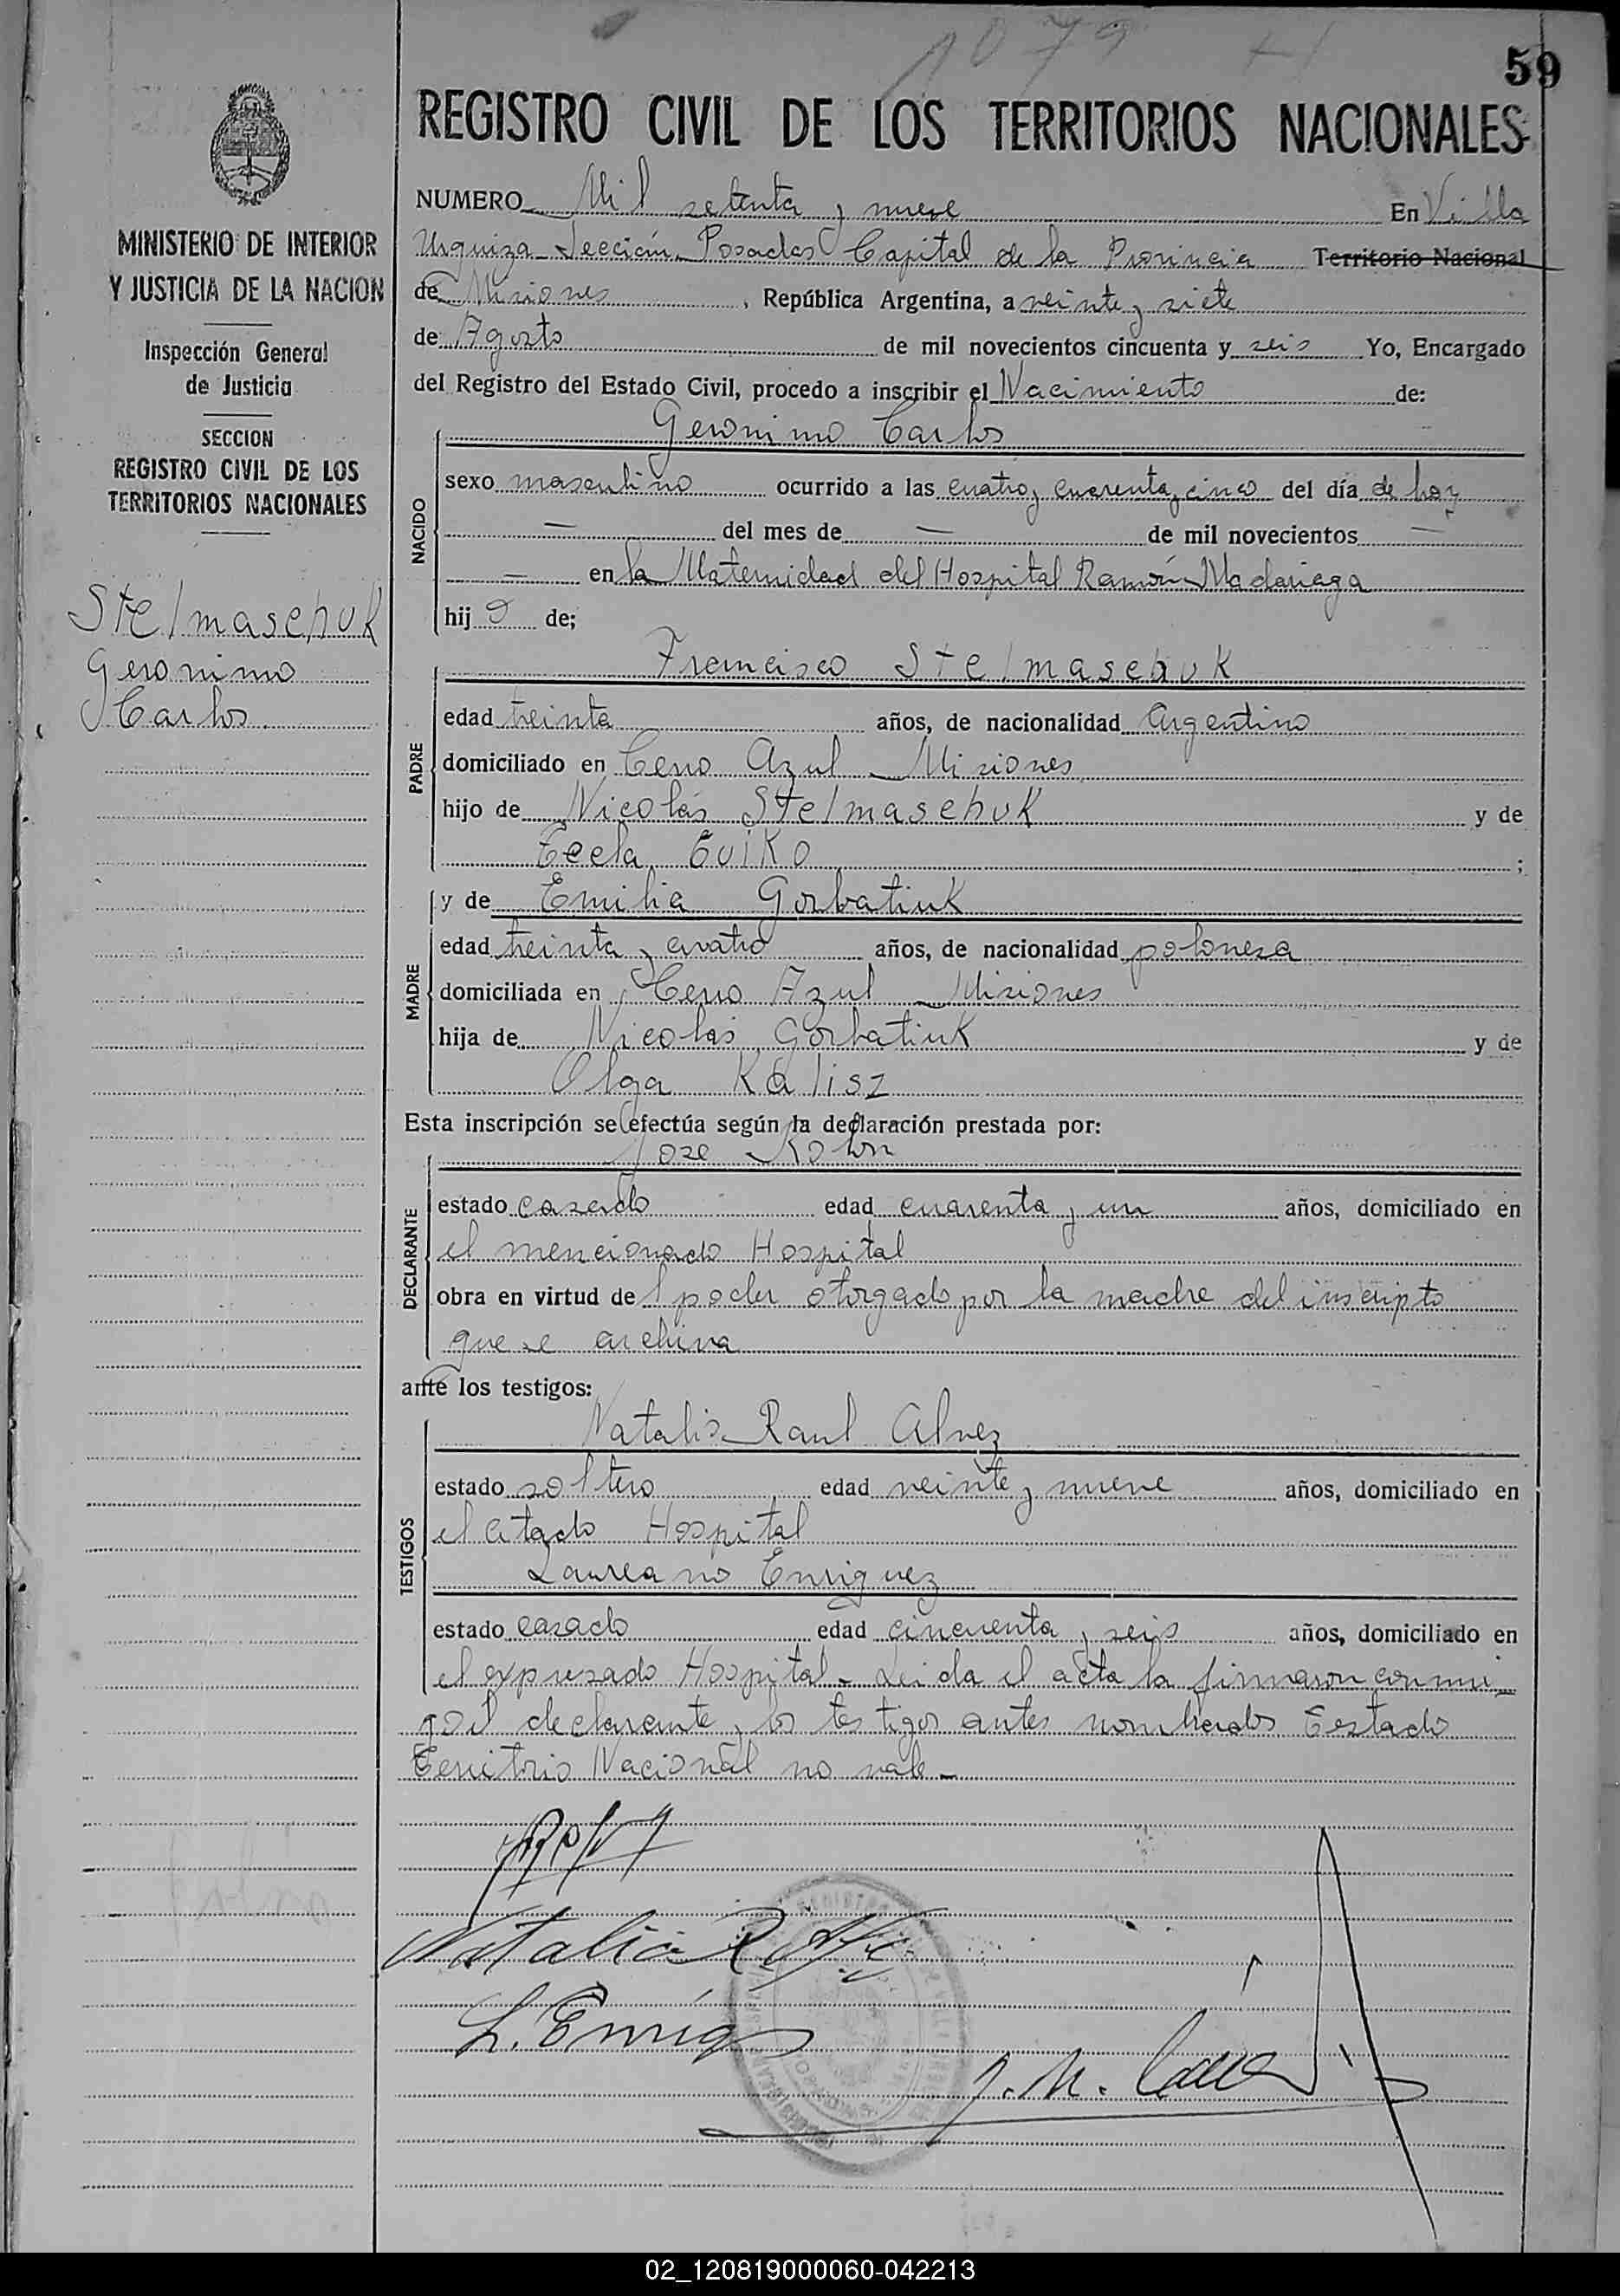 1079
59
REGISTRO CIVIL DE LOS TERRITORIOS NACIONALES
MINISTERIO DE INTERIOR
Y JUSTICIA DE LA NACION
Inspección General
de Justicia
SECCION
REGISTRO CIVIL DE LOS
TERRITORIOS NACIONALES
Stelmaschuk
Geronimo
Carlos
NUMERO Mil setenta y nueve En Villa
Urquiza-Sección Posadas Capital de la Provincia Territorio Nacional
de Misiones, República Argentina, a veinte y siete
de Agosto de mil novecientos cincuenta y seis Yo, Encargado
del Registro del Estado Civil, procedo a inscribir el Nacimiento de:
NACIDO
Geronimo Carlos
sexo masculino ocurrido a las cuatro y cuarenta y cinco del día de hoy
— del mes de — de mil novecientos —
— en la Maternidad del Hospital Ramón Madariaga
hij o de;
PADRE
Francisco Stelmaschuk
edad treinta años, de nacionalidad Argentino
domiciliado en Cerro Azul - Misiones
hijo de Nicolás Stelmaschuk y de
Tecla Tuiko ;
MADRE
y de Emilia Gorbatiuk
edad treinta y cuatro años, de nacionalidad polonesa
domiciliada en Cerro Azul - Misiones
hija de Nicolás Gorbatiuk y de
Olga Kalisz
Esta inscripción se efectúa según la declaración prestada por:
DECLARANTE
Jose Kolon
estado casado edad cuarenta y un años, domiciliado en
el mencionado Hospital
obra en virtud del poder otorgado por la madre del inscripto
que se archiva
ante los testigos:
TESTIGOS
Natalio Raul Alvez
estado soltero edad veinte y nueve años, domiciliado en
el citado Hospital
Laureano Enriquez
estado casado edad cincuenta y seis años, domiciliado en
el expresado Hospital - Leida el acta la firmaron conmi-
go el declarante y los testigos antes nombrados Testado
Territorio Nacional no vale -
Natalio R. Alvez
L. Enriq
J. M.
02_120819000060-042213